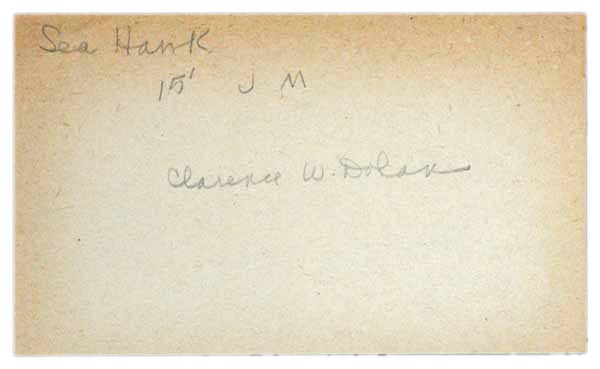 Sea Hawk
15' J M
Clarence W. Dolan